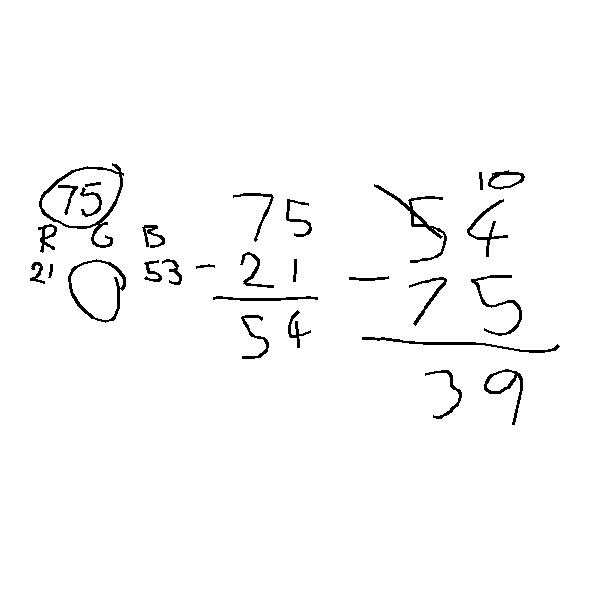 75
R G B
21 53
75
- 21
54
10
54
- 75
39